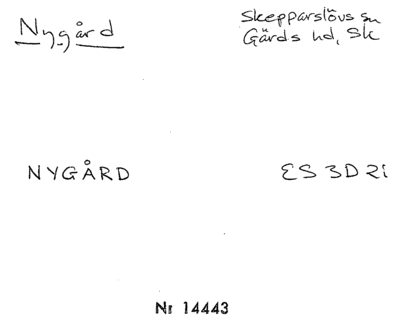 Nygård
Skepparslövs sn
Gärds hd, Sk
NYGÅRD
ES 3D 2i
Nr 14443